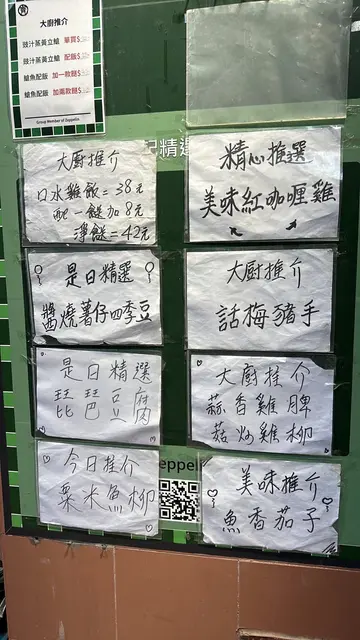 大廚推介
豉汁蒸黃立鯧 單買$
豉汁蒸黃立鯧 配飯$
鯧魚配飯 加一款餸$
鯧魚配飯 加兩款餸$
Group Member of Zeppelin
記精選
大廚推介
口水雞飯=38元
配一餸加8元
淨餸=42元
精心推選
美味紅咖喱雞
是日精選
醬燒薯仔四季豆
大廚推介
話梅豬手
是日精選
琵琶豆腐
大廚推介
蒜香雞脾
菇炒雞柳
今日推介
粟米魚柳
eppeli
美味推介
魚香茄子